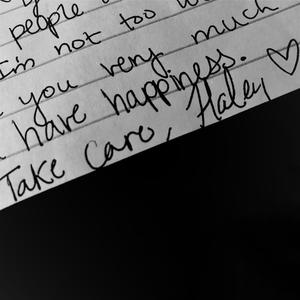 people
I'm not too
you very much
have happiness.
Take Care, Haley ♡